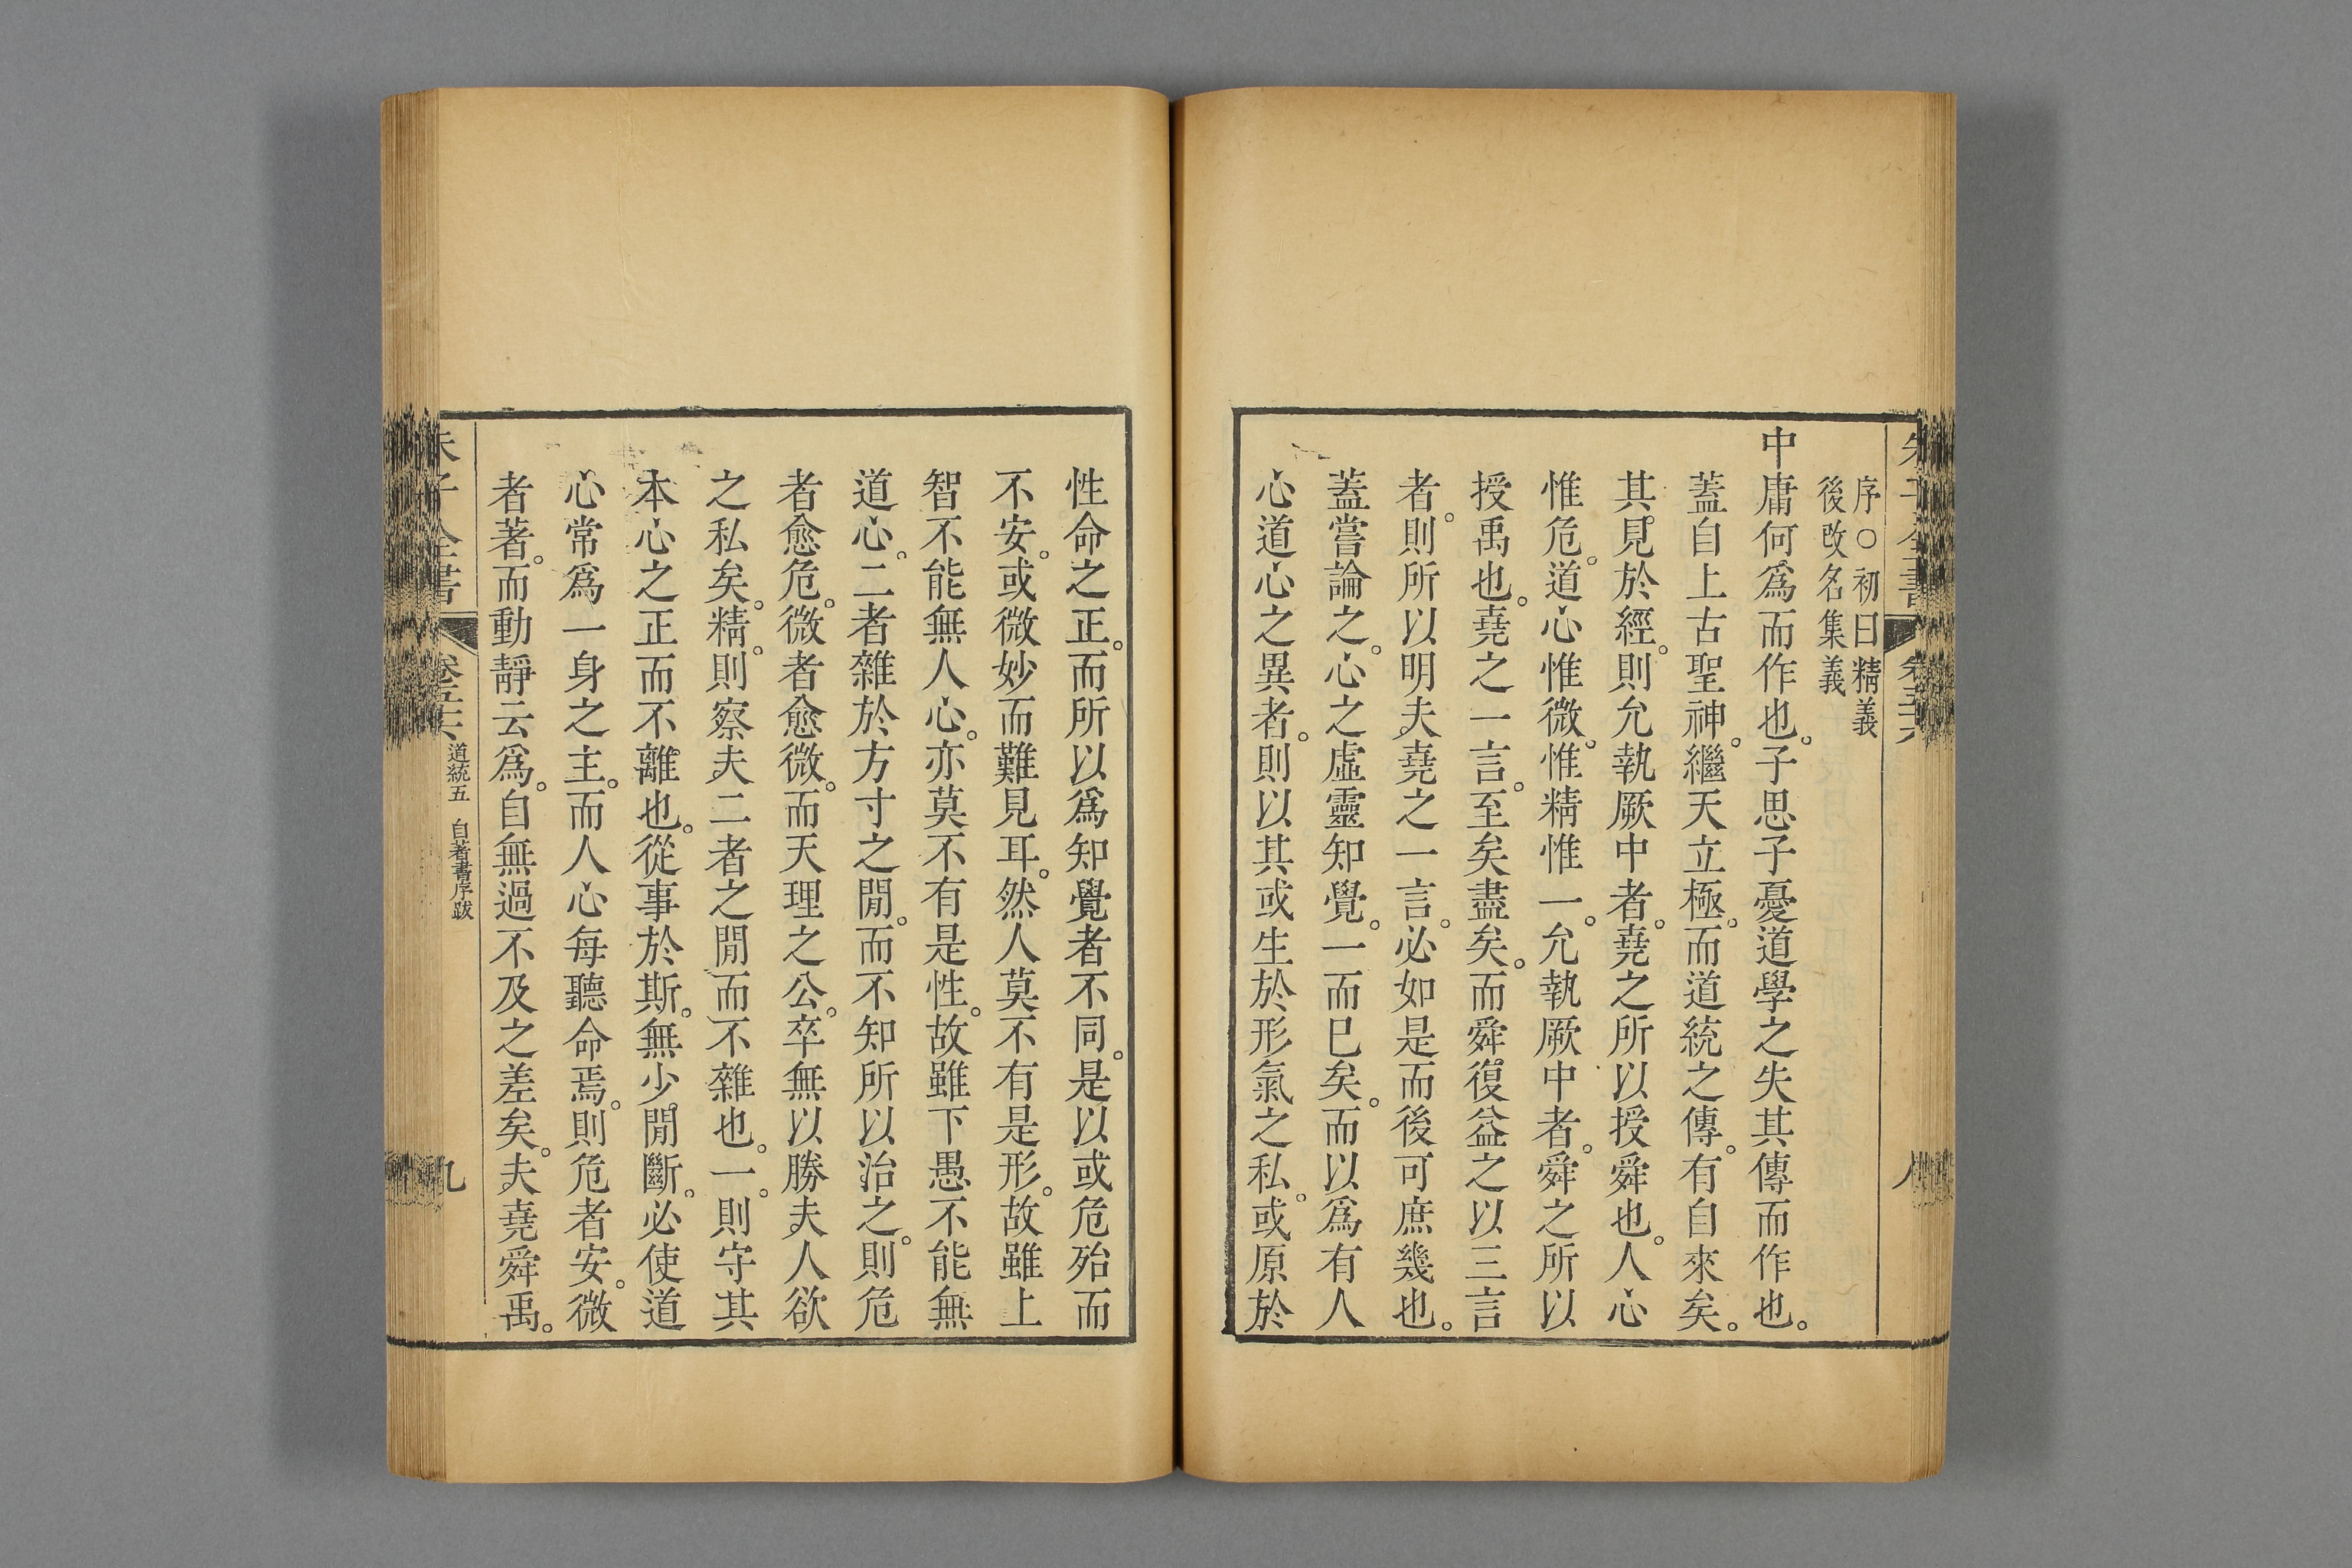 序○初曰精義
後改名集義
中庸何爲而作也。子思子憂道學之失其傳而作也。
蓋自上古聖神。繼天立極。而道統之傳。有自來矣。
其見於經。則允執厥中者。堯之所以授舜也。人心
惟危。道心惟微。惟精惟一。允執厥中者。舜之所以
授禹也。堯之一言。至矣盡矣。而舜復益之以三言
者。則所以明夫堯之一言。必如是而後可庶幾也。
蓋嘗論之。心之虛靈知覺。一而已矣。而以爲有人
心道心之異者。則以其或生於形氣之私。或原於
性命之正。而所以爲知覺者不同。是以或危殆而
不安。或微妙而難見耳。然人莫不有是形。故雖上
智不能無人心。亦莫不有是性。故雖下愚不能無
道心。二者雜於方寸之閒。而不知所以治之。則危
者愈危。微者愈微。而天理之公。卒無以勝夫人欲
之私矣。精。則察夫二者之閒而不雜也。一。則守其
本心之正而不離也。從事於斯。無少閒斷。必使道
心常爲一身之主。而人心每聽命焉。則危者安。微
者著。而動靜云爲。自無過不及之差矣。夫堯舜禹。
朱子全書 卷五十六 道統五 自著書序跋 九